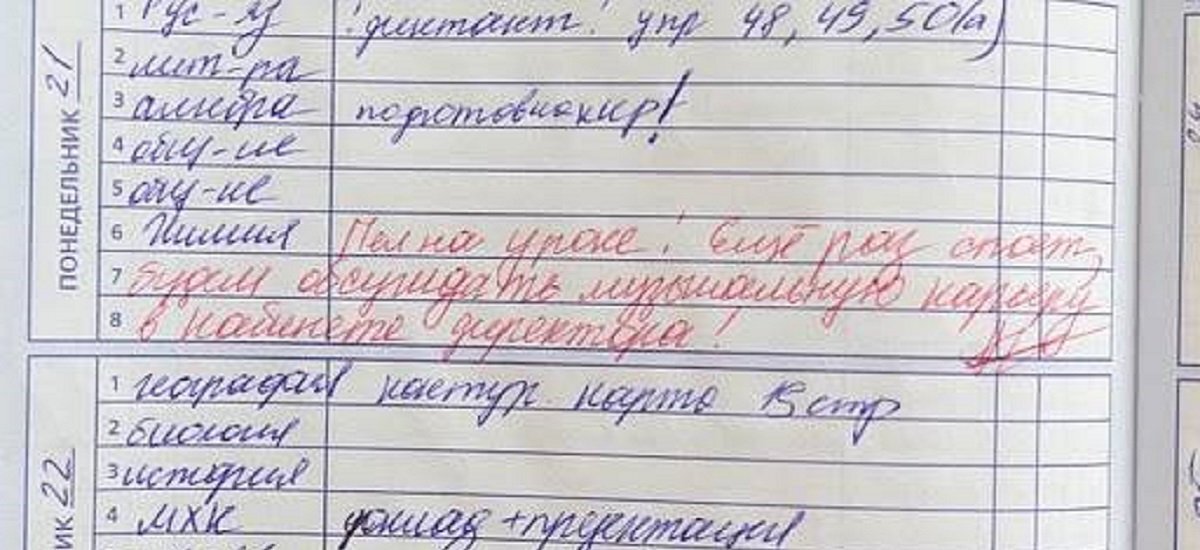 ПОНЕДЕЛЬНИК 21
1 Рус-яз !диктант! упр 48, 49, 50(а)
2 лит-ра
3 алгебра подготовка к кр!
4 общ-ие
5 общ-ие
6 Химия Пел на уроке! Ещё раз споёт,
7 будем обсуждать музыкальную карьеру
8 в кабинете директора!
ИК 22
1 география контур. карта 13 стр
2 биология
3 история
4 МХК доклад + презентация